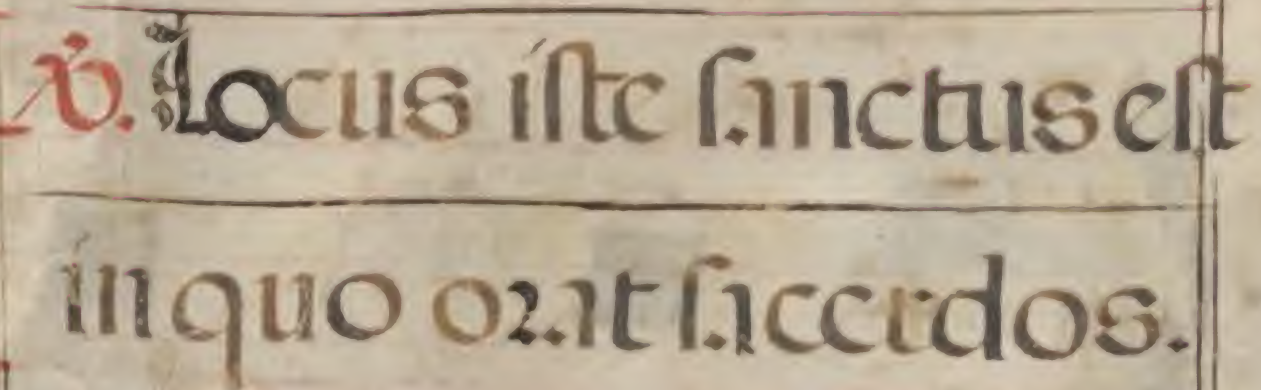 ℣. Locus iſte ſanctus eſt
in quo orat ſacerdos.